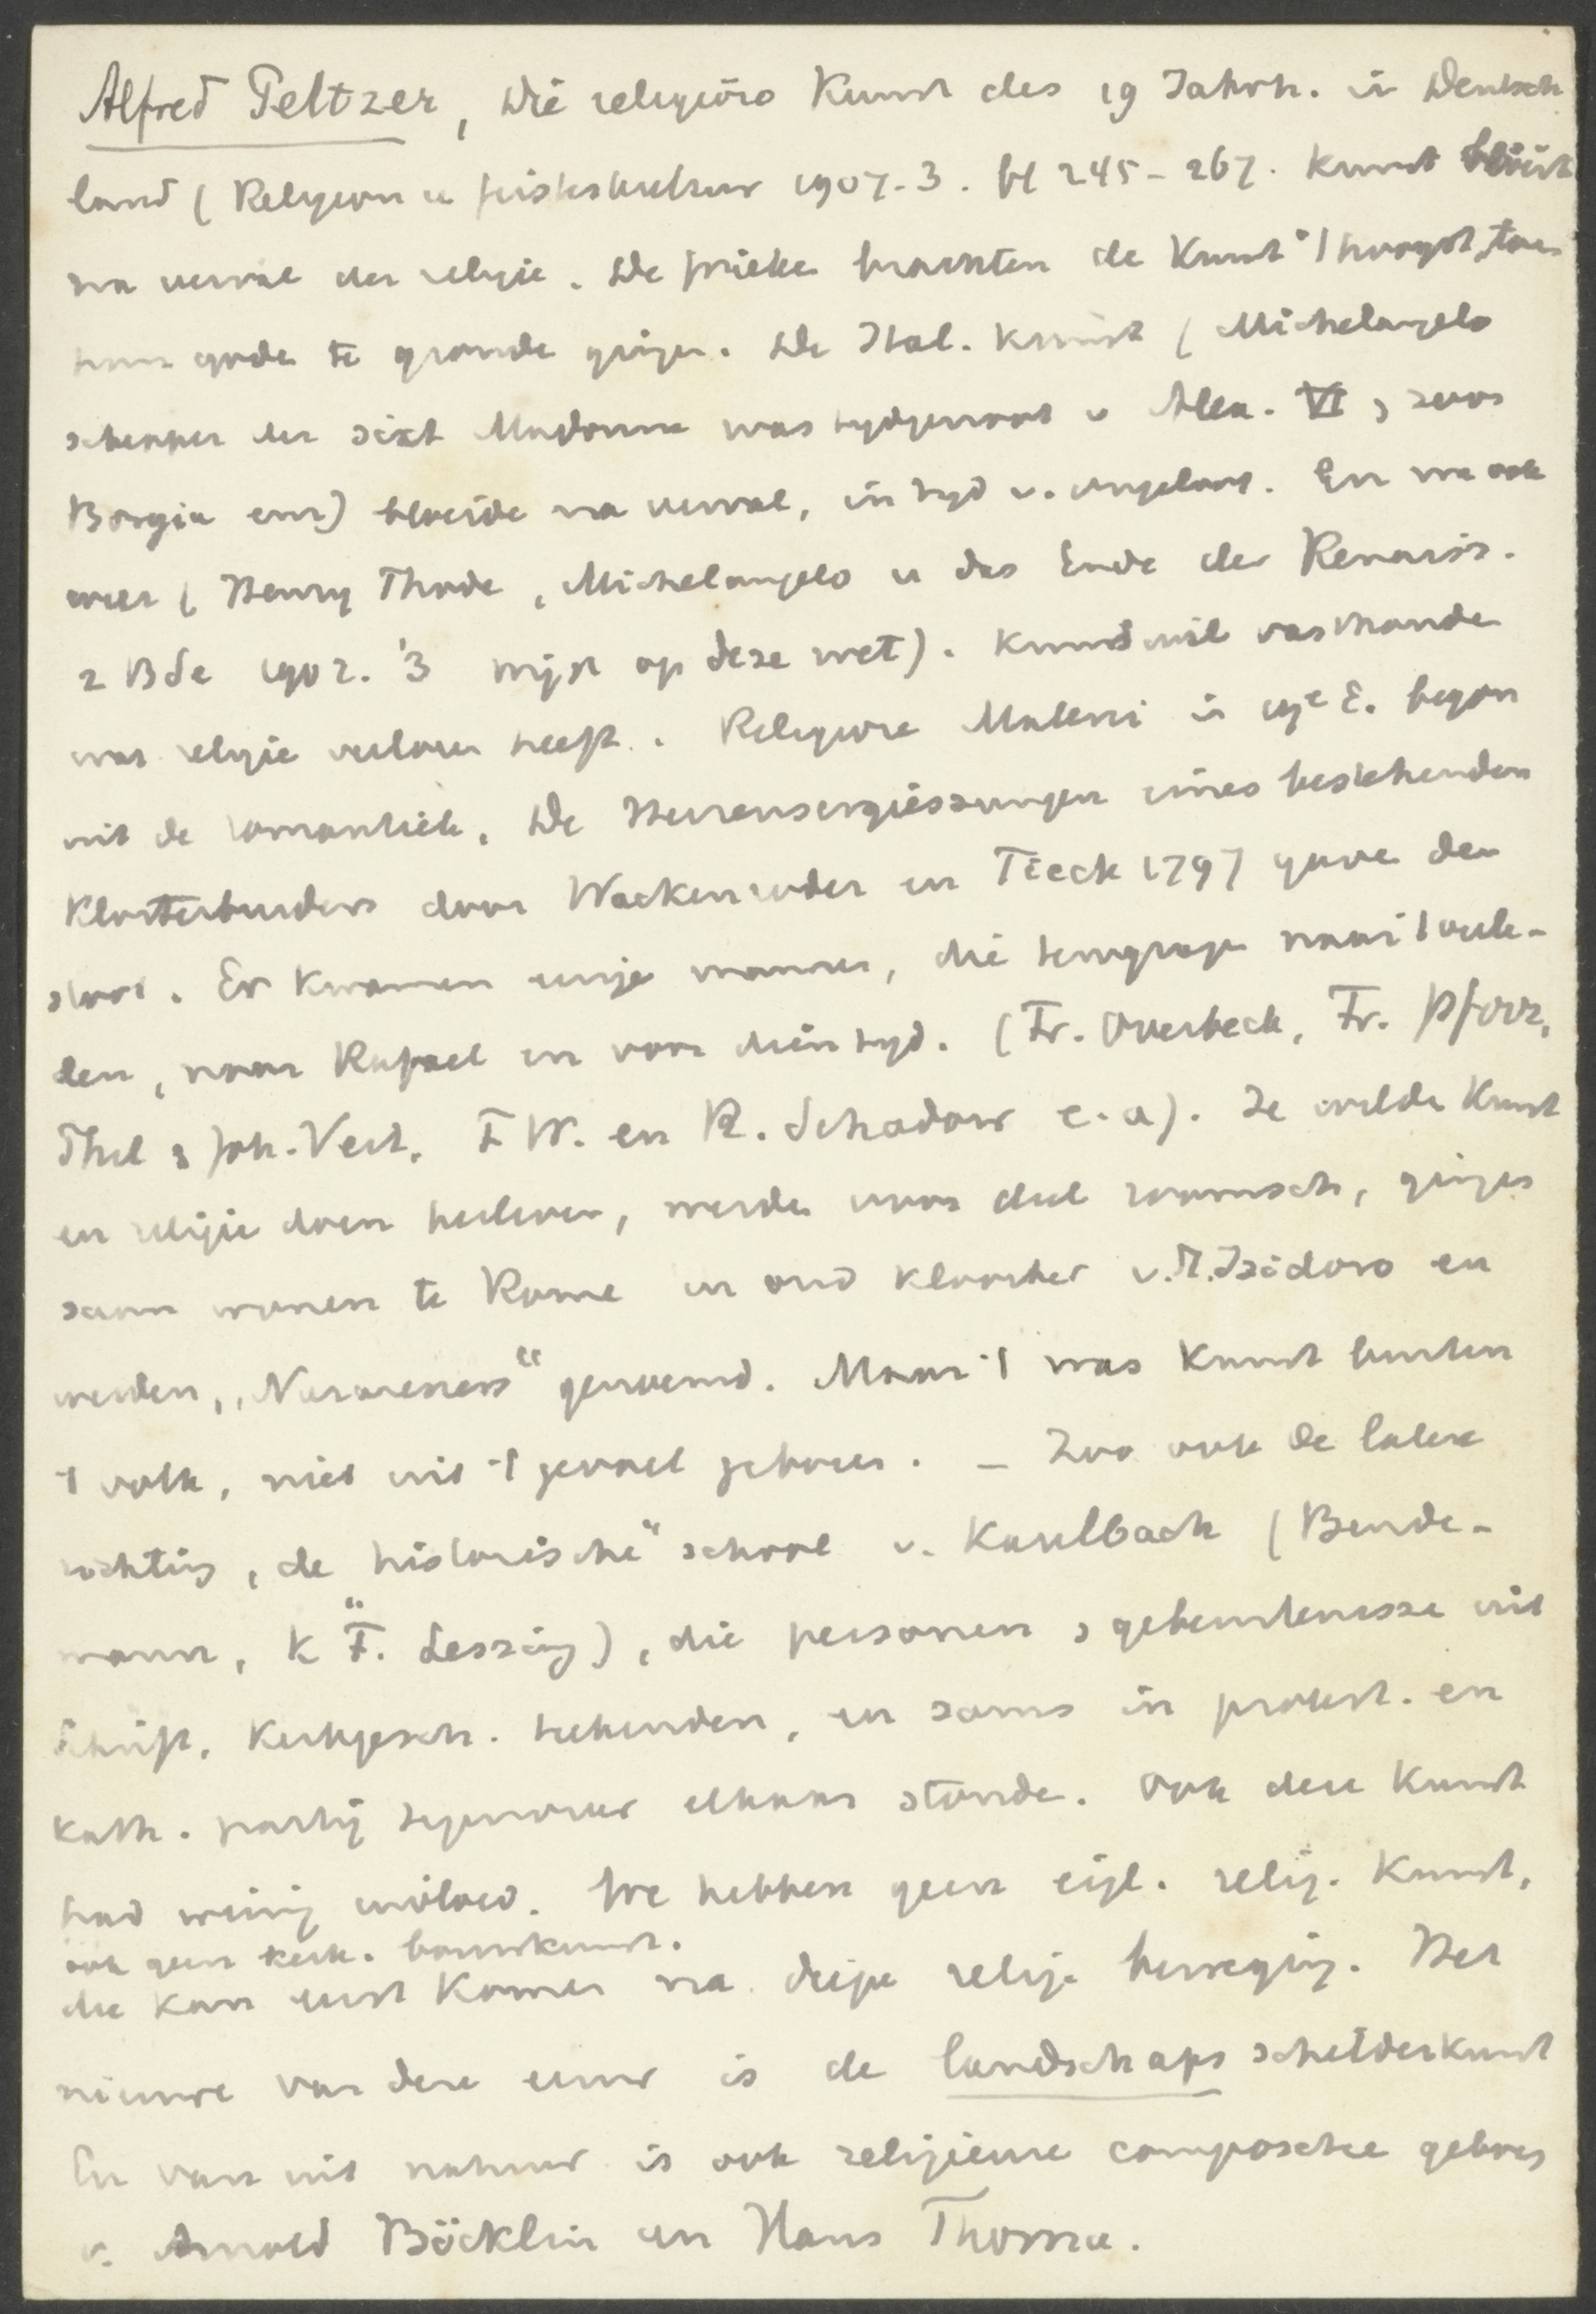 Alfred Peltzer, Die religiöse Kunst des 19 Jahrh. in Deutsch
land (Religion u Geisteskultur 1907. 3. bl 245-267. Kunst bloeit
na verval der religie. De Grieken brachten de Kunst 't hoogst, toen
hun goden te gronde gingen. De Ital. Kunst (Michelangelo
schepper der Sixt Madonna was tijdgenoot v Alex. VI, Cesar
Borgia enz) bloeide na verval, in tijd v. ongeloof. En zoo ook
weer (Henry Thode, Michelangelo u das Ende der Renaiss.
2 Bde 1902. '3 wijst op deze wet). Kunst wil vasthouden
wat religie verloren heeft. Religieuze Malerei in 19e E. begon
met de romantiek. De Herzensergiessungen eines bestehenden
Klosterbruders door Wackenroder en Tieck 1797 gaven den
stoot. Er kwamen enige mannen, die teruggrepen naar 't oude-
den, naar Rafael en voor diens tijd. (Fr. Overbeck, Fr. Pforr,
Phil & Joh. Veit, F W. en R. Schadow e.a). Ze wilden Kunst
en religie doen herleven, werden voor deel roomsch, gingen
saam wonen te Rome in oud klooster v. S. Isidoro en
werden „Nazareners“ genoemd. Maar 't was Kunst buiten
't volk, niet uit 't gevoel geboren. — Zoo ook de latere
richting, de „historische“ school v. Kaulbach (Bende-
mann, K F. Lessing), die personen & gebeurtenissen uit
Schrift, Kerkgesch. teekenden, en soms in protest. en
Kath. partij tegenover elkaar stonden. Ook deze Kunst
had weinig invloed. We hebben geen eigl. relig. Kunst,
ook geen kerk. bouwkunst.
die kan eerst komen na diepe religi. beweging. Het
nieuwe van deze eeuw is de landschaps schilderkunst
En van uit natuur is ook religieuse compositie geboren
v. Arnold Böcklin en Hans Thoma.